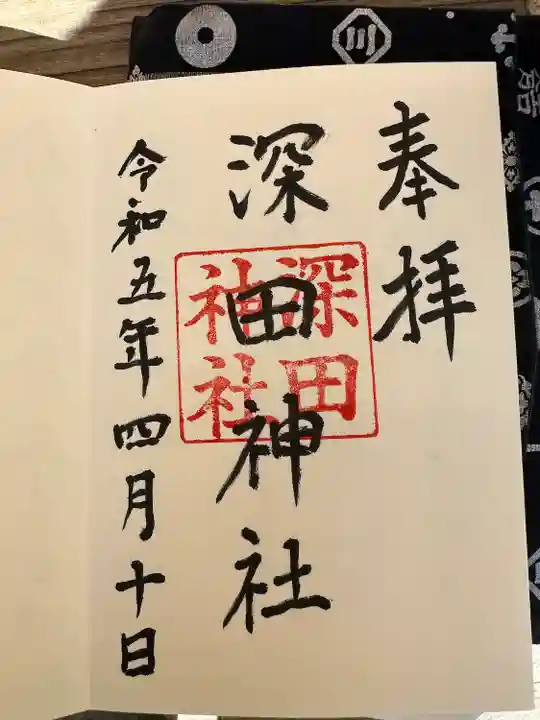 奉拝
深田神社
深田
神社
令和五年四月十日
川